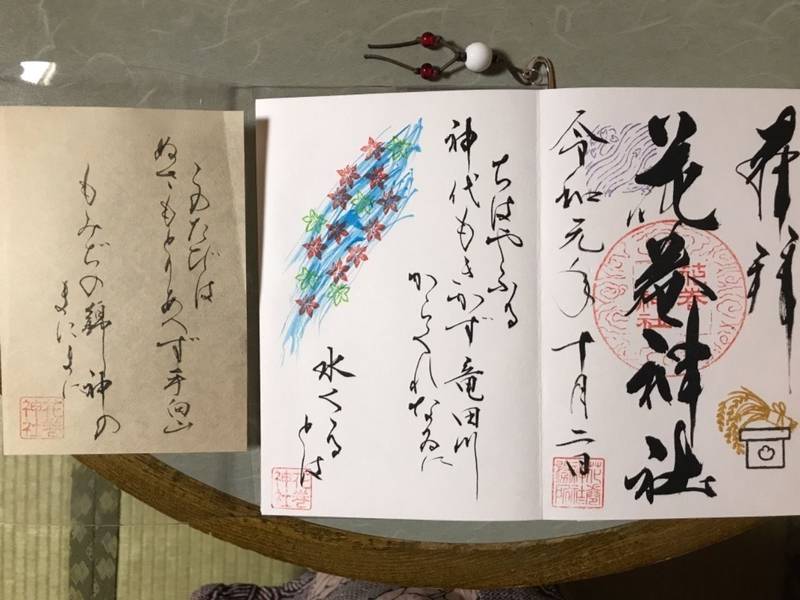 奉拝
花巻神社
令和元年十月二日
ちはやふる
神代もきかず竜田川
からくれなゐに
水くくる
とは
このたびは
ぬさもとりあへず手向山
もみぢの錦神の
まにまに